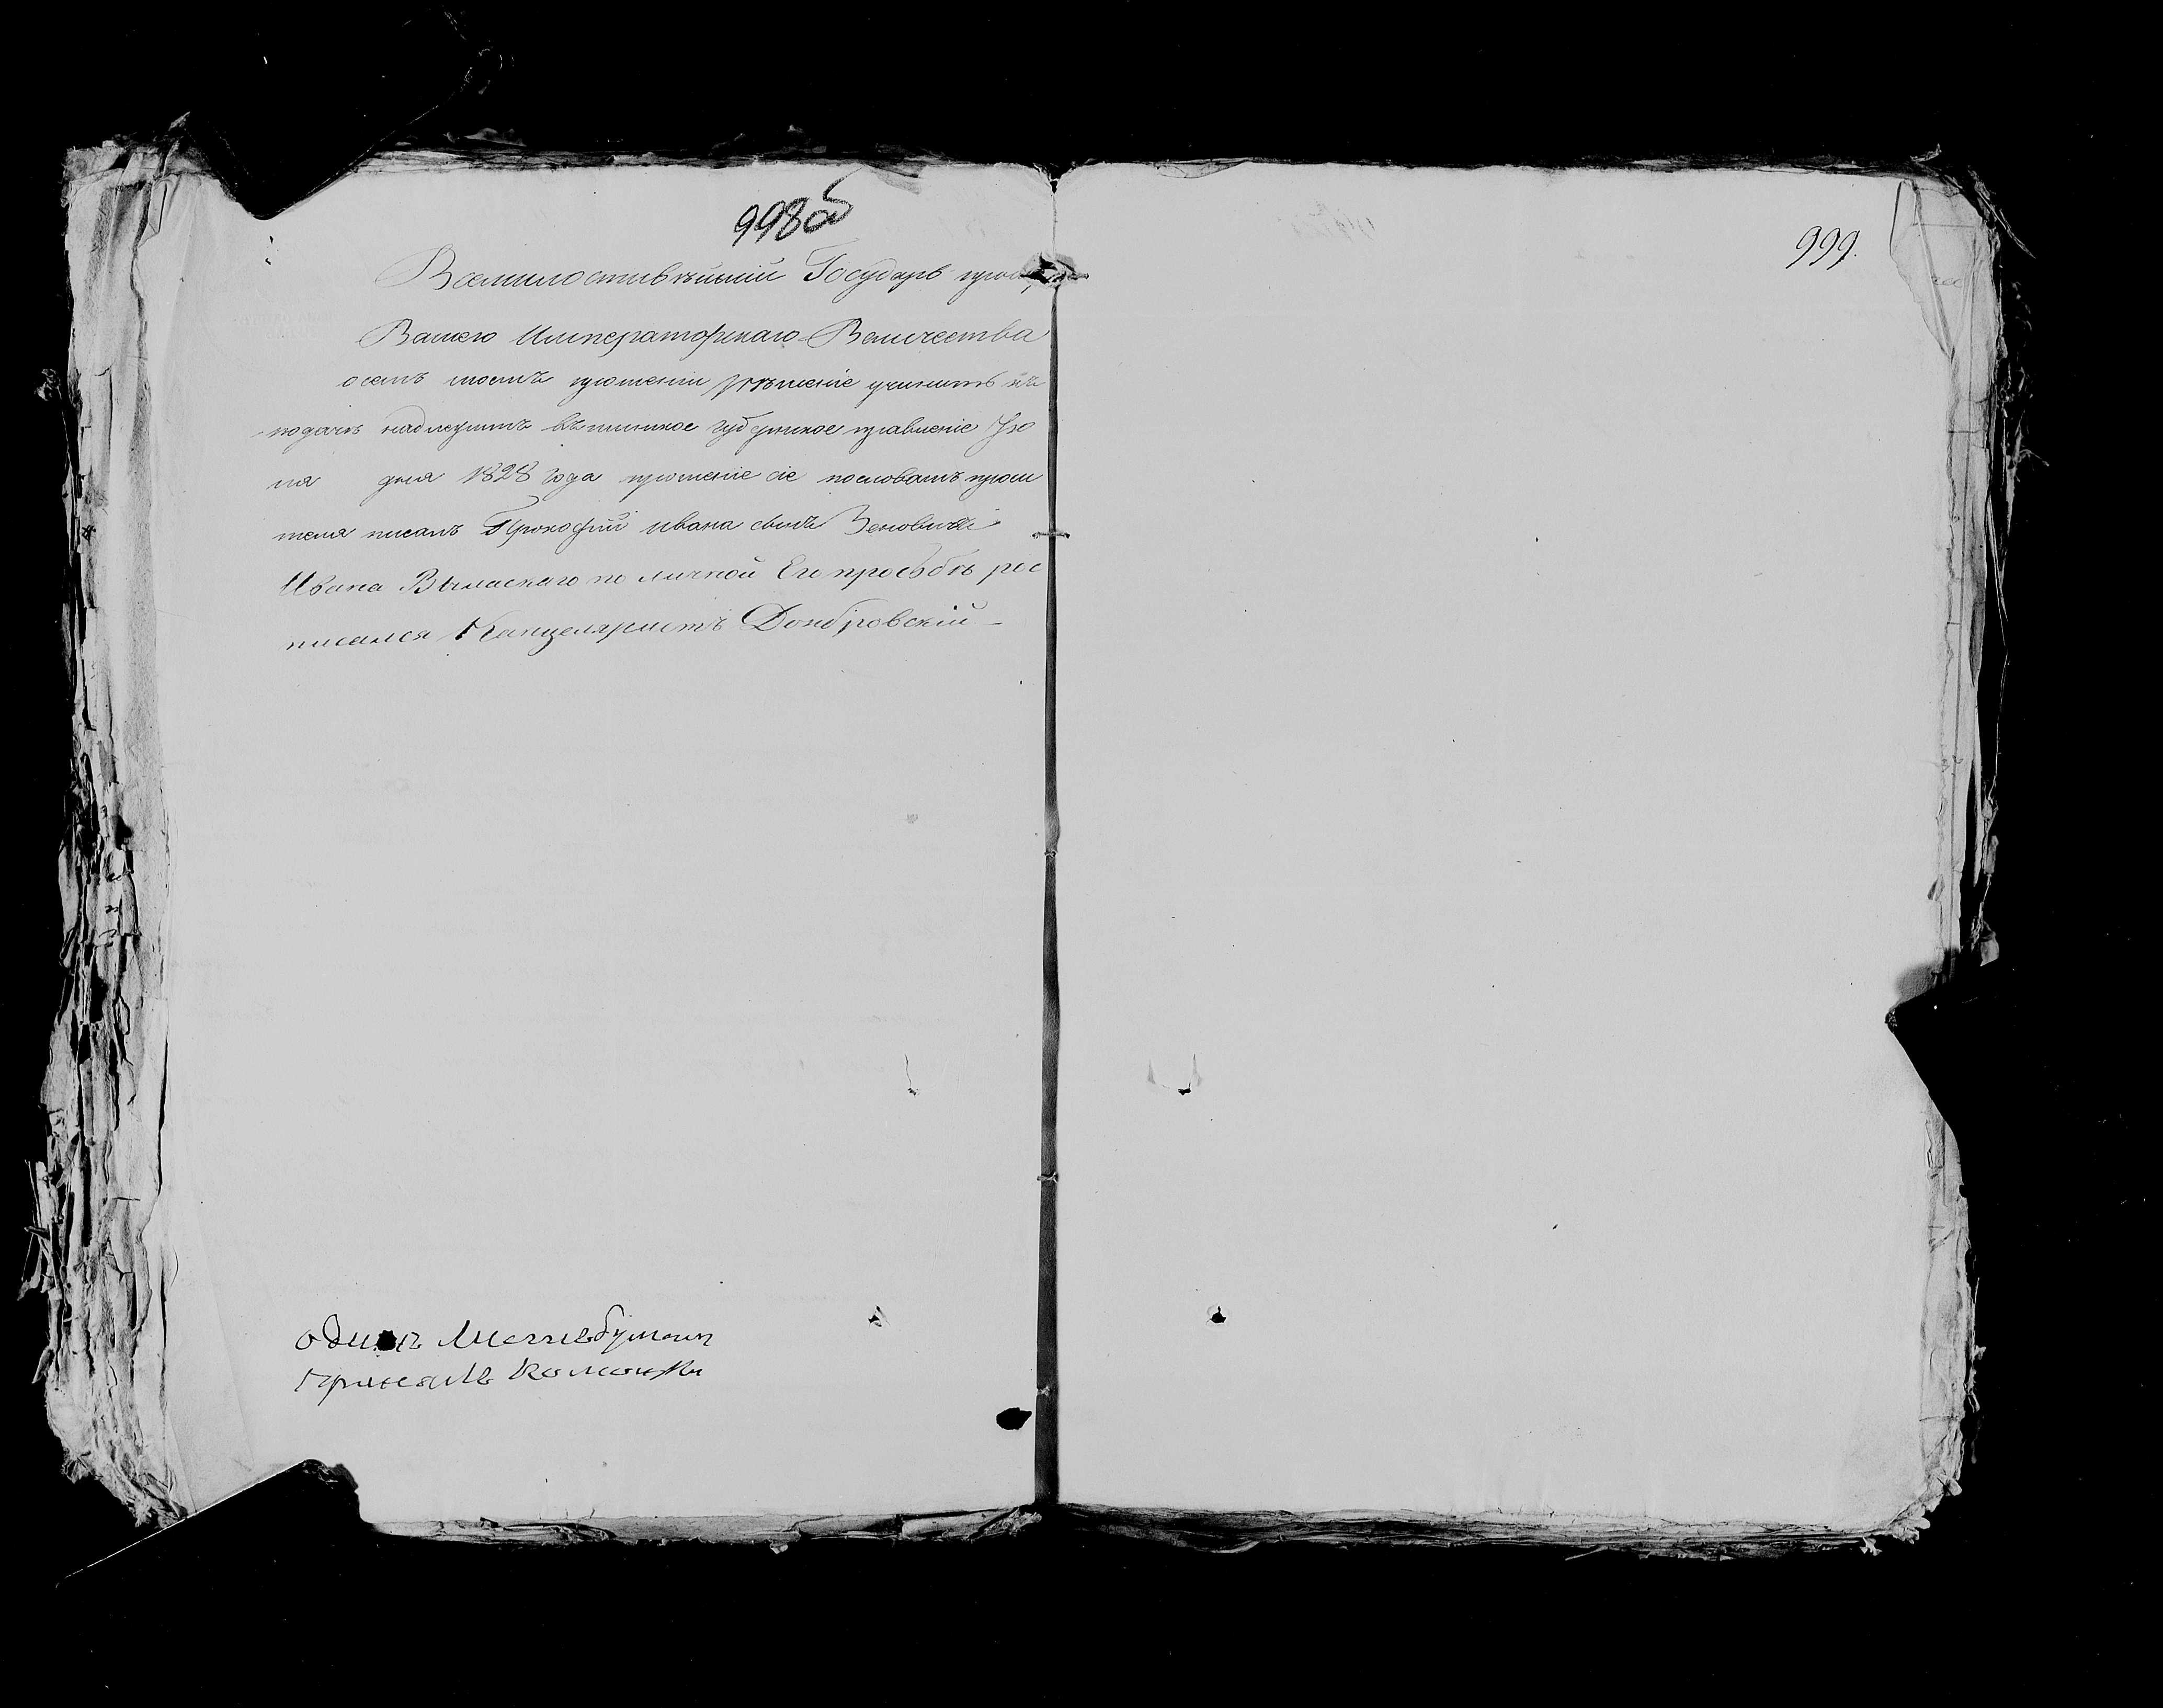 998об
999.
Всемилостивѣйшій Государь прошу
Вашего Императорскаго Величества
о семъ моемъ прошеніи рѣшеніе учинить къ
подачѣ надлежитъ въ минское губернское правленіе Ію
ня дня 1828 года прошеніе сіе пословамъ проси
теля писалъ Прокофій Ивана сынъ
Ивана по личной Его прозьбѣ рос
писался Канцеляристъ Домбровский
одинъ Листъ бумаги
Принялъ